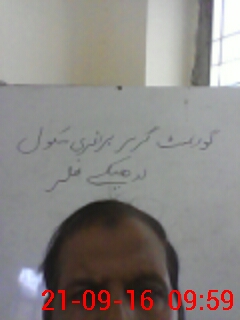 گورنمنٹ گرلز پرائمری سکول
21-09-16 09:59